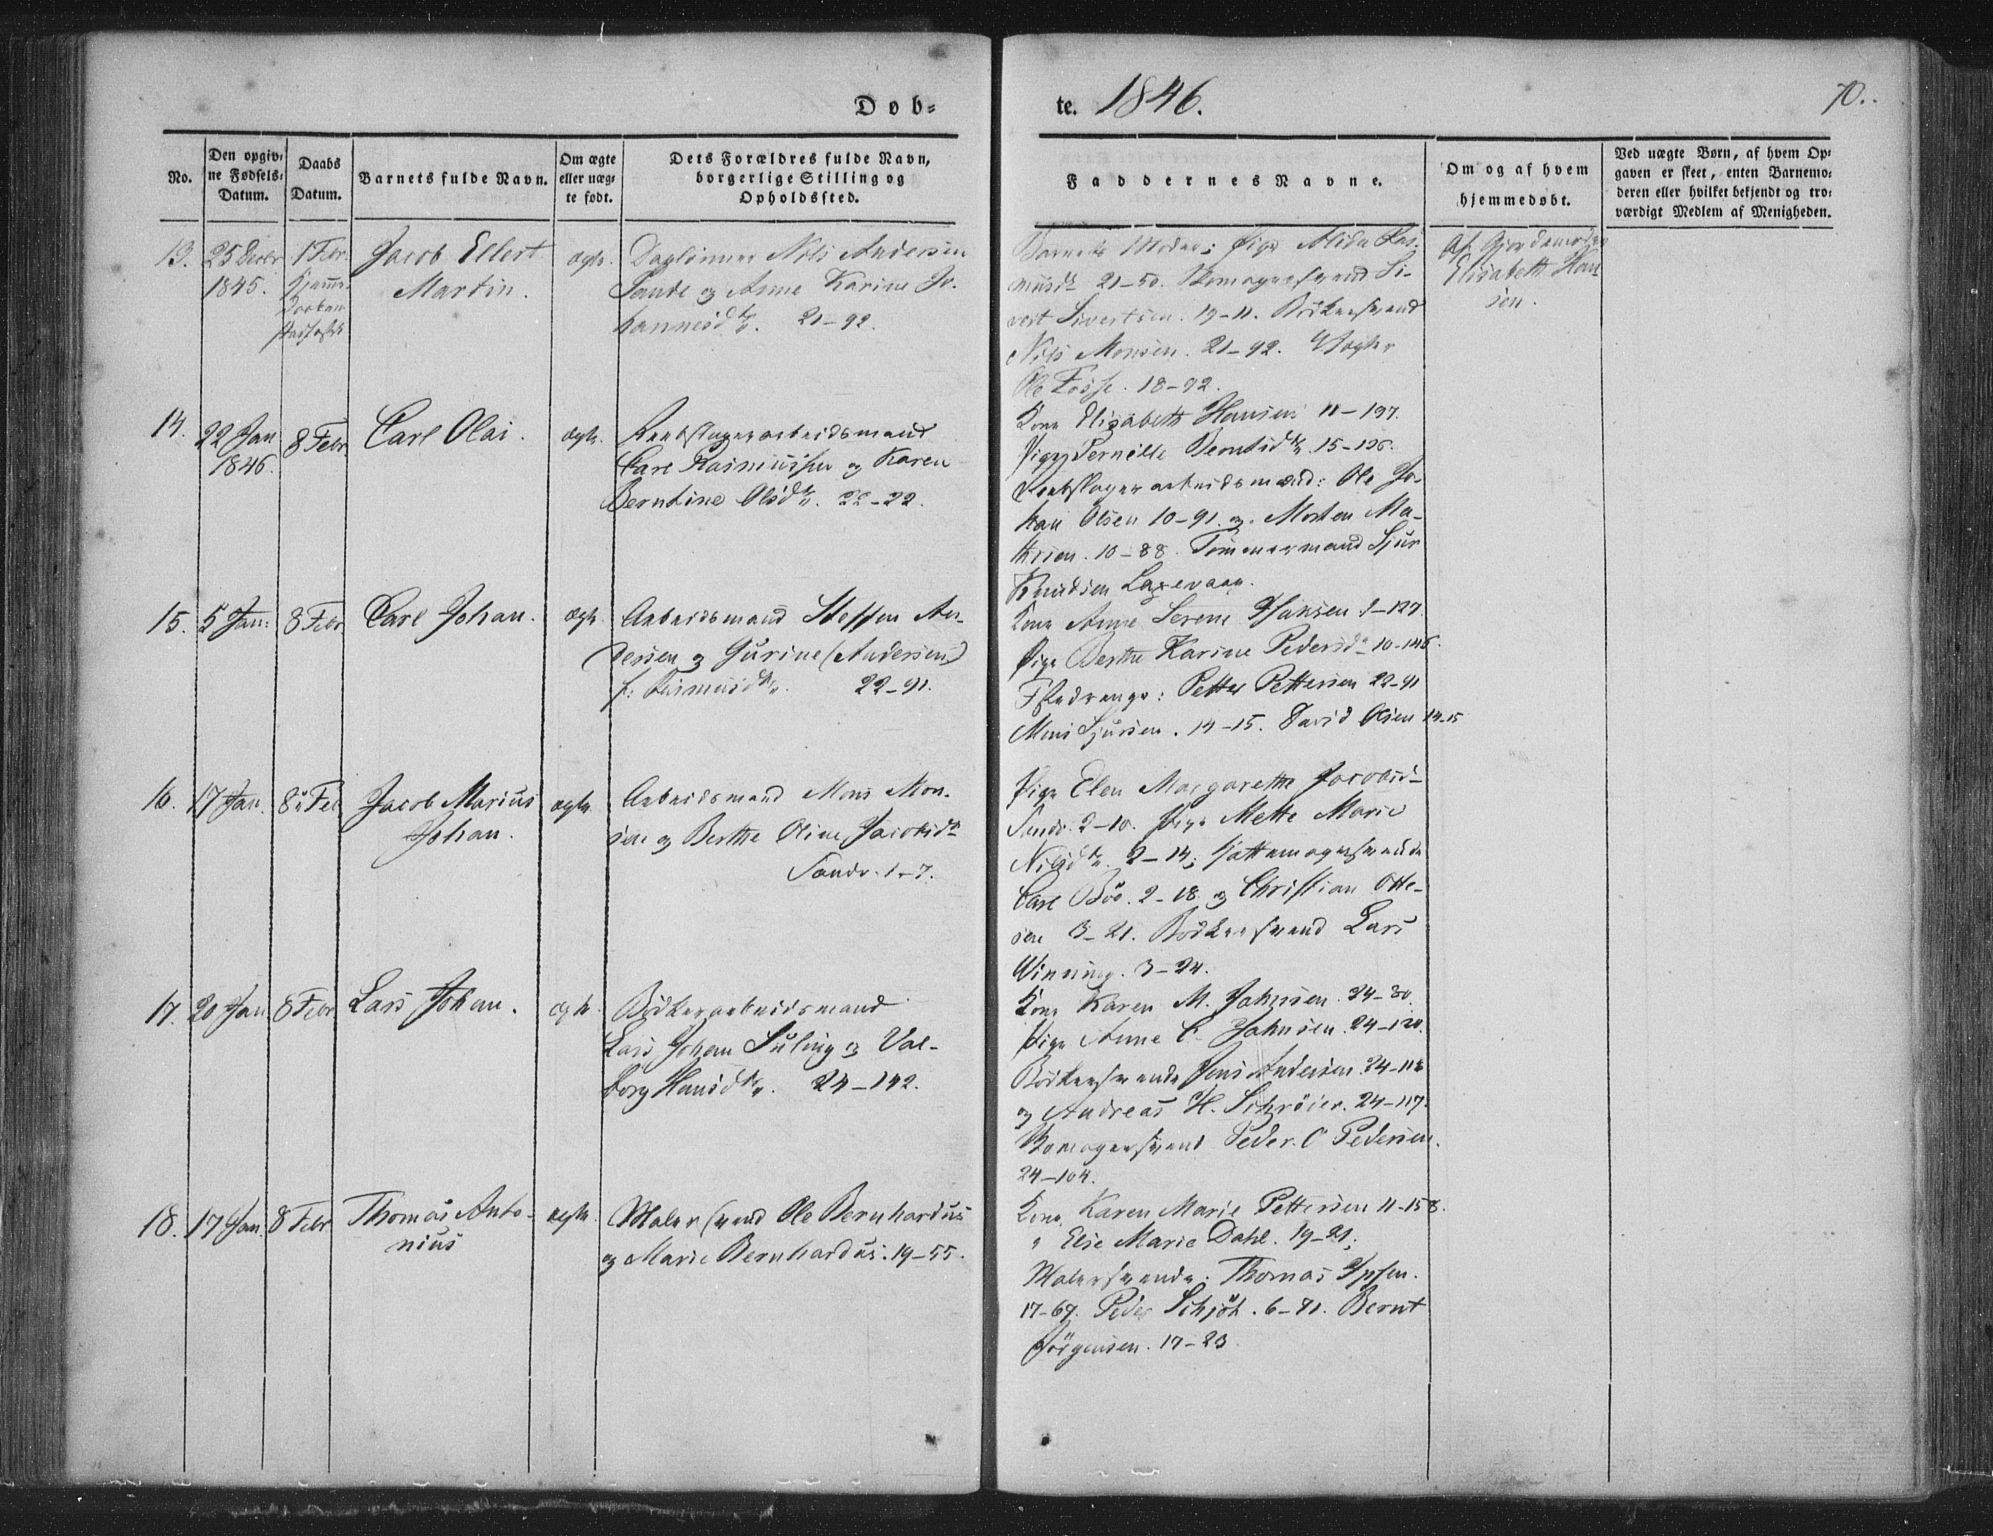 Døb=
te. 1846.
70.
No.
Den opgiv=
ne Fødsels=
Datum.
Daabs
Datum.
Barnets fulde Navn.
Om ægte
eller uæg=
te født.
Dets Forældres fulde Navn,
borgerlige Stilling og
Opholdssted.
Faddernes Navne.
Om og af hvem
hjemmedøbt.
Ved uægte Børn, af hvem Op=
gaven er skeet, enten Barnemo=
deren eller hvilket bekjendt og tro=
værdigt Medlem af Menigheden.
13. 25 Decbr 1 Febr Jacob Ellert ægte Daglønner Nils Andersen
1845. Martin. Sande og Anne Karine Jo-
hannesdtr. 21-92.
Barnets Moder; Pige Alida Ras-
musdr 21-50. Skomagersvend Si-
vert Sivertsen. 19-11. Bødkersvend
Nils Monsen. 21-92. Vægter
Ole Fosse. 18-92.
Af Gjordemoder
Elisabeth Han
sen.
14. 22 Jan 8 Febr Carl Olai. ægte. Reebslagerarbeidsmand
1846. Carl Rasmussen og Karen
Berntine Olsdtr. 22-22.
Kone Elisabeth Hansen 11-197.
Pige Pernille Berntsdtr. 15-126.
Reebslagerarbeidsmænd: Ole Jo-
han Olsen 10-91. og Morten Ma-
thisen. 10-88. Tømmermand Sjur
Knudsen Laxevaag.
15. 5 Jan: 8 Febr Carl Johan. ægte. Arbeidsmand Steffen An-
dersen og Gurine (Andersen)
f: Rasmusdtr. 22-91.
Kone Anne Serene Hansen 1-127.
Pige Berthe Karine Pedersdr 10-146.
Petter Pettersen 22-91
Mons Sjursen. 14-15. David Olsen 14-15
16. 17 Jan. 8 Feb Jacob Marius ægte. Arbeidsmand Mons Mon-
Johan. sen og Berthe Oline Jacobsdr
Sande. 1-7.
Pige Elen Margarethe Jacobsd-
Sande. 2-10. Pige Mette Marie
Nilsdtr. 2-14; Hattemagersvende
Carl Böe. 2-18 og Christian Otte-
sen 3-21. Bødkersvend Lars
Winning. 3-24.
17. 20 Jan 8 Febr Lars Johan. ægte. Bødkerarbeidsmand
Lars Johan Süling og Val-
borg Hansdtr. 24-142.
Kone Karen M. Jahnsen. 24-30.
Pige Anne C. Jahnsen. 24-120.
Bødkersvende Jens Andersen. 24-112
og Andreas H. Schröier. 24-117.
Skomagersvend Peder C Pedersen.
24-104.
18. 17 Jan. 8 Febr Thomas Anto- ægte. Malersvend Ole Bernhardus
nius og Marie Bernhardus. 19-55.
Kone Karen Marie Pettersen 11-158.
" Else Marie Dahl. 19-21;
Malersvende: Thomas Ipsen.
17-67. Peder Schjöt. 6-71. Bernt
Jörgensen. 17-23.